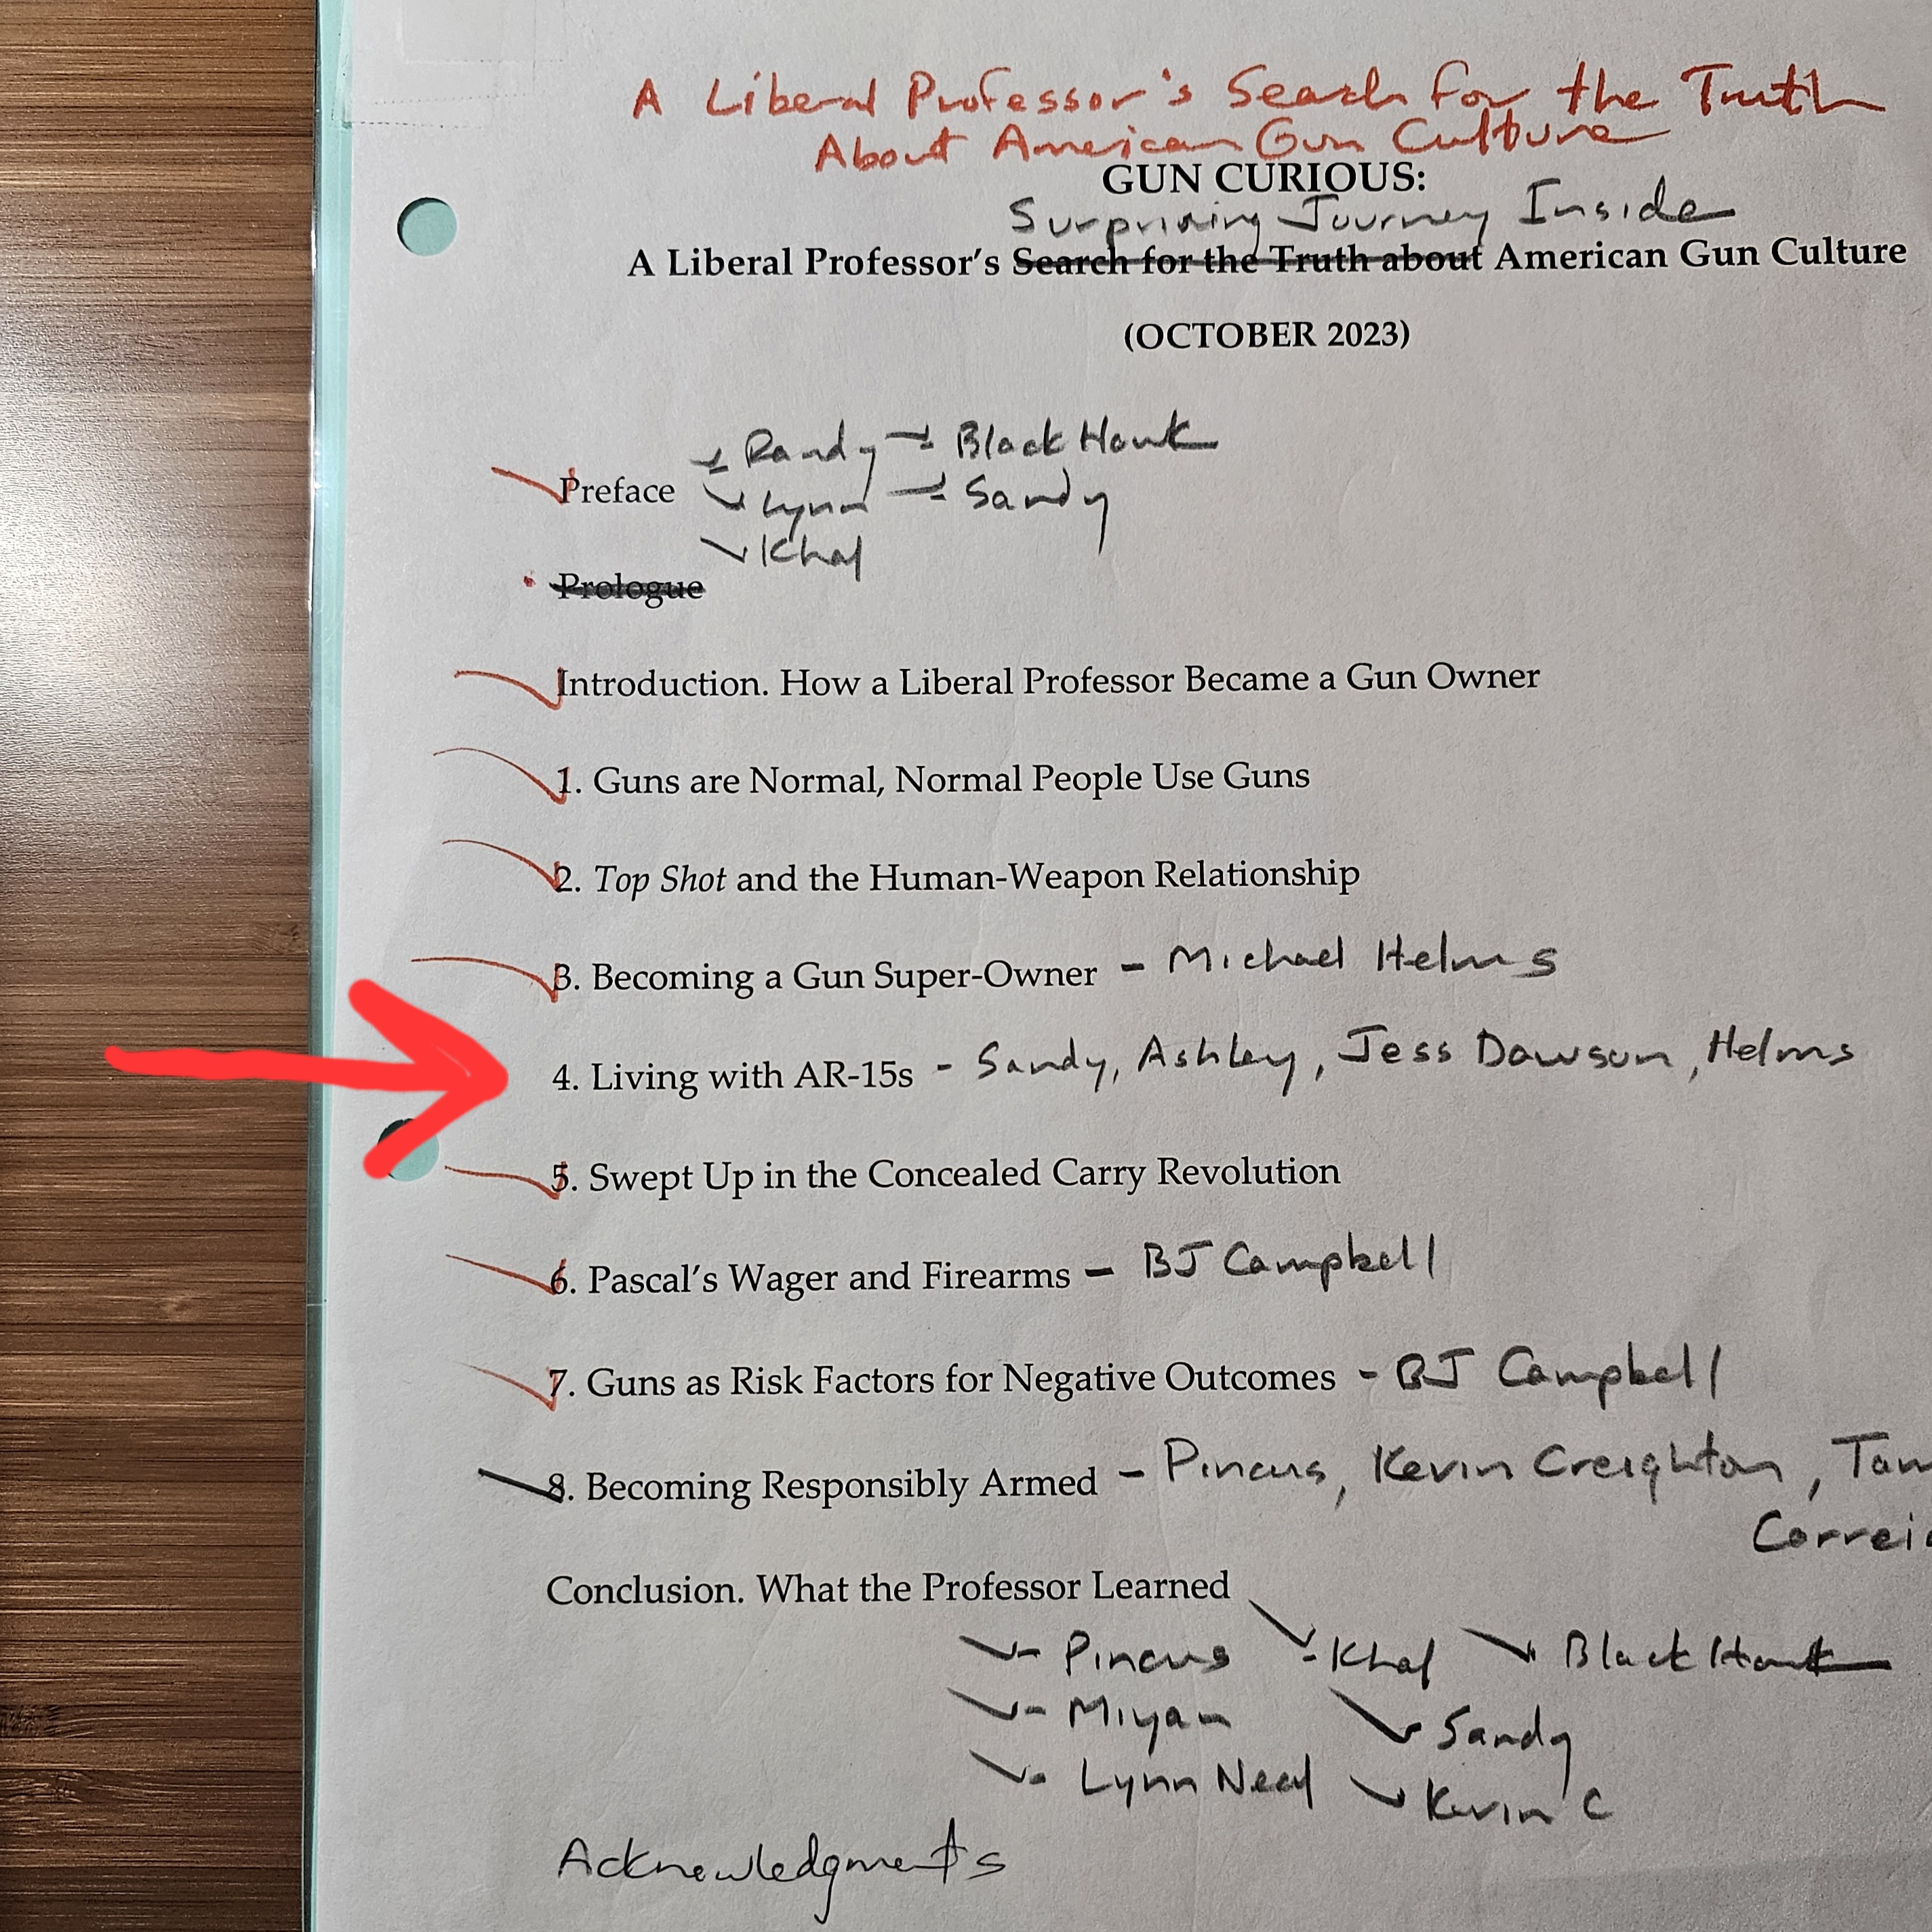 A Liberal Professor's Search for the Truth
About American Gun Culture
GUN CURIOUS:
Surprising Journey Inside
A Liberal Professor's Search for the Truth about American Gun Culture
(OCTOBER 2023)
Randy Black Hawk
Preface Lynn Sandy
Prologue
Introduction. How a Liberal Professor Became a Gun Owner
1. Guns are Normal, Normal People Use Guns
2. Top Shot and the Human-Weapon Relationship
3. Becoming a Gun Super-Owner - Michael Helms
4. Living with AR-15s - Sandy, Ashley, Jess Dawson, Helms
5. Swept Up in the Concealed Carry Revolution
6. Pascal's Wager and Firearms - BJ Campbell
7. Guns as Risk Factors for Negative Outcomes - BJ Campbell
8. Becoming Responsibly Armed - Pincus, Kevin Creighton,
Conclusion. What the Professor Learned
- Pincus Black Hawk
- Miyan Sandy
- Lynn Kevin C
Acknowledgments